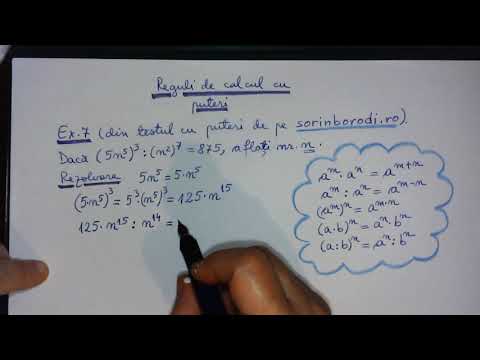 Reguli de calcul cu
puteri
Ex.7 (din testul cu puteri de pe sorinborodi.ro).
Dacă (5n⁵)³ : (n²)⁷ = 875, aflați nr. n.
Rezolvare 5n⁵ = 5·n⁵
(5·n⁵)³ = 5³·(n⁵)³ = 125·n¹⁵
125·n¹⁵ : n¹⁴ =
aᵐ · aⁿ = aᵐ⁺ⁿ
aᵐ : aⁿ = aᵐ⁻ⁿ
(aᵐ)ⁿ = aᵐ·ⁿ
(a·b)ⁿ = aⁿ·bⁿ
(a:b)ⁿ = aⁿ:bⁿ